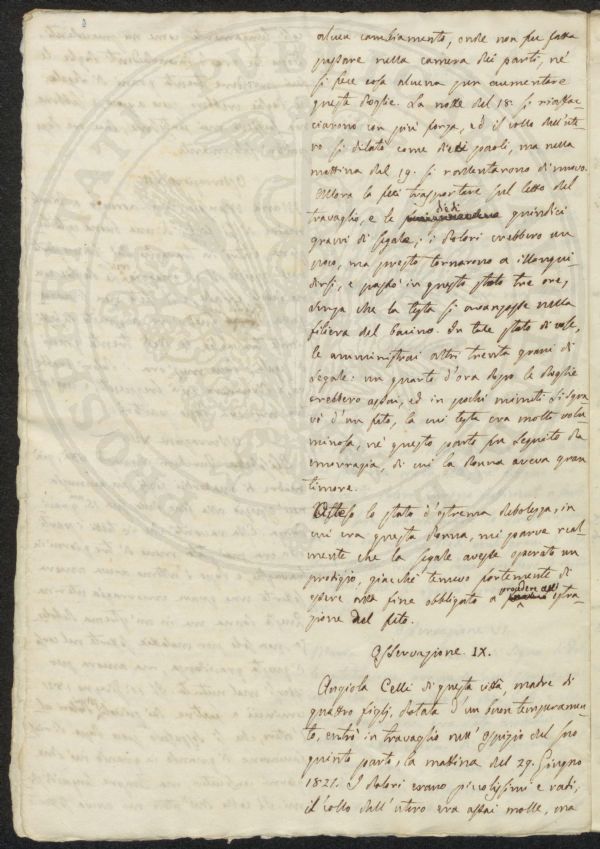 alcun cambiamento, onde non fu fatta
passare nella camera dei parti, né
si fece cosa alcuna per aumentare
queste doglie. La notte del 18. si riaffac
ciarono con più forza, ed il collo dell'ute-
ro si dilatò come dieci paoli, ma nella
mattina del 19. si rallentarono di nuovo.
Allora la feci trasportare sul letto del
travaglio, e le diedi quindici
grani di segale; i dolori crebbero un
poco, ma presto tornarono a illangui-
dirsi, e passò in questo stato tre ore,
senza che la testa si avanzasse nella
filiera del bacino. In tale stato di cose,
le amministrai altri trenta grani di
segale: un quarto d'ora dopo le doglie
crebbero assai, ed in pochi minuti si sgra
vò d'un feto, la cui testa era molto volu-
minosa, né questo parto fu seguito da
emorragia, di cui la donna aveva gran
timore.
Atteso lo stato d'estrema debolezza, in
cui era questa donna, mi parve real-
mente che la segale avesse operato un
prodigio, giacché temevo fortemente di
essere alla fine obbligato a procedere all' estra-
zione del feto.
Osservazione. IX.
Angiola Celli di questa città, madre di
quattro figlj, dotata d'un buon temperamen-
to, entrò in travaglio nell'Ospizio del suo
quinto parto, la mattina del 29. Giugno
1821. I dolori erano piccolissimi e radi,
il collo dell'utero era assai molle, ma